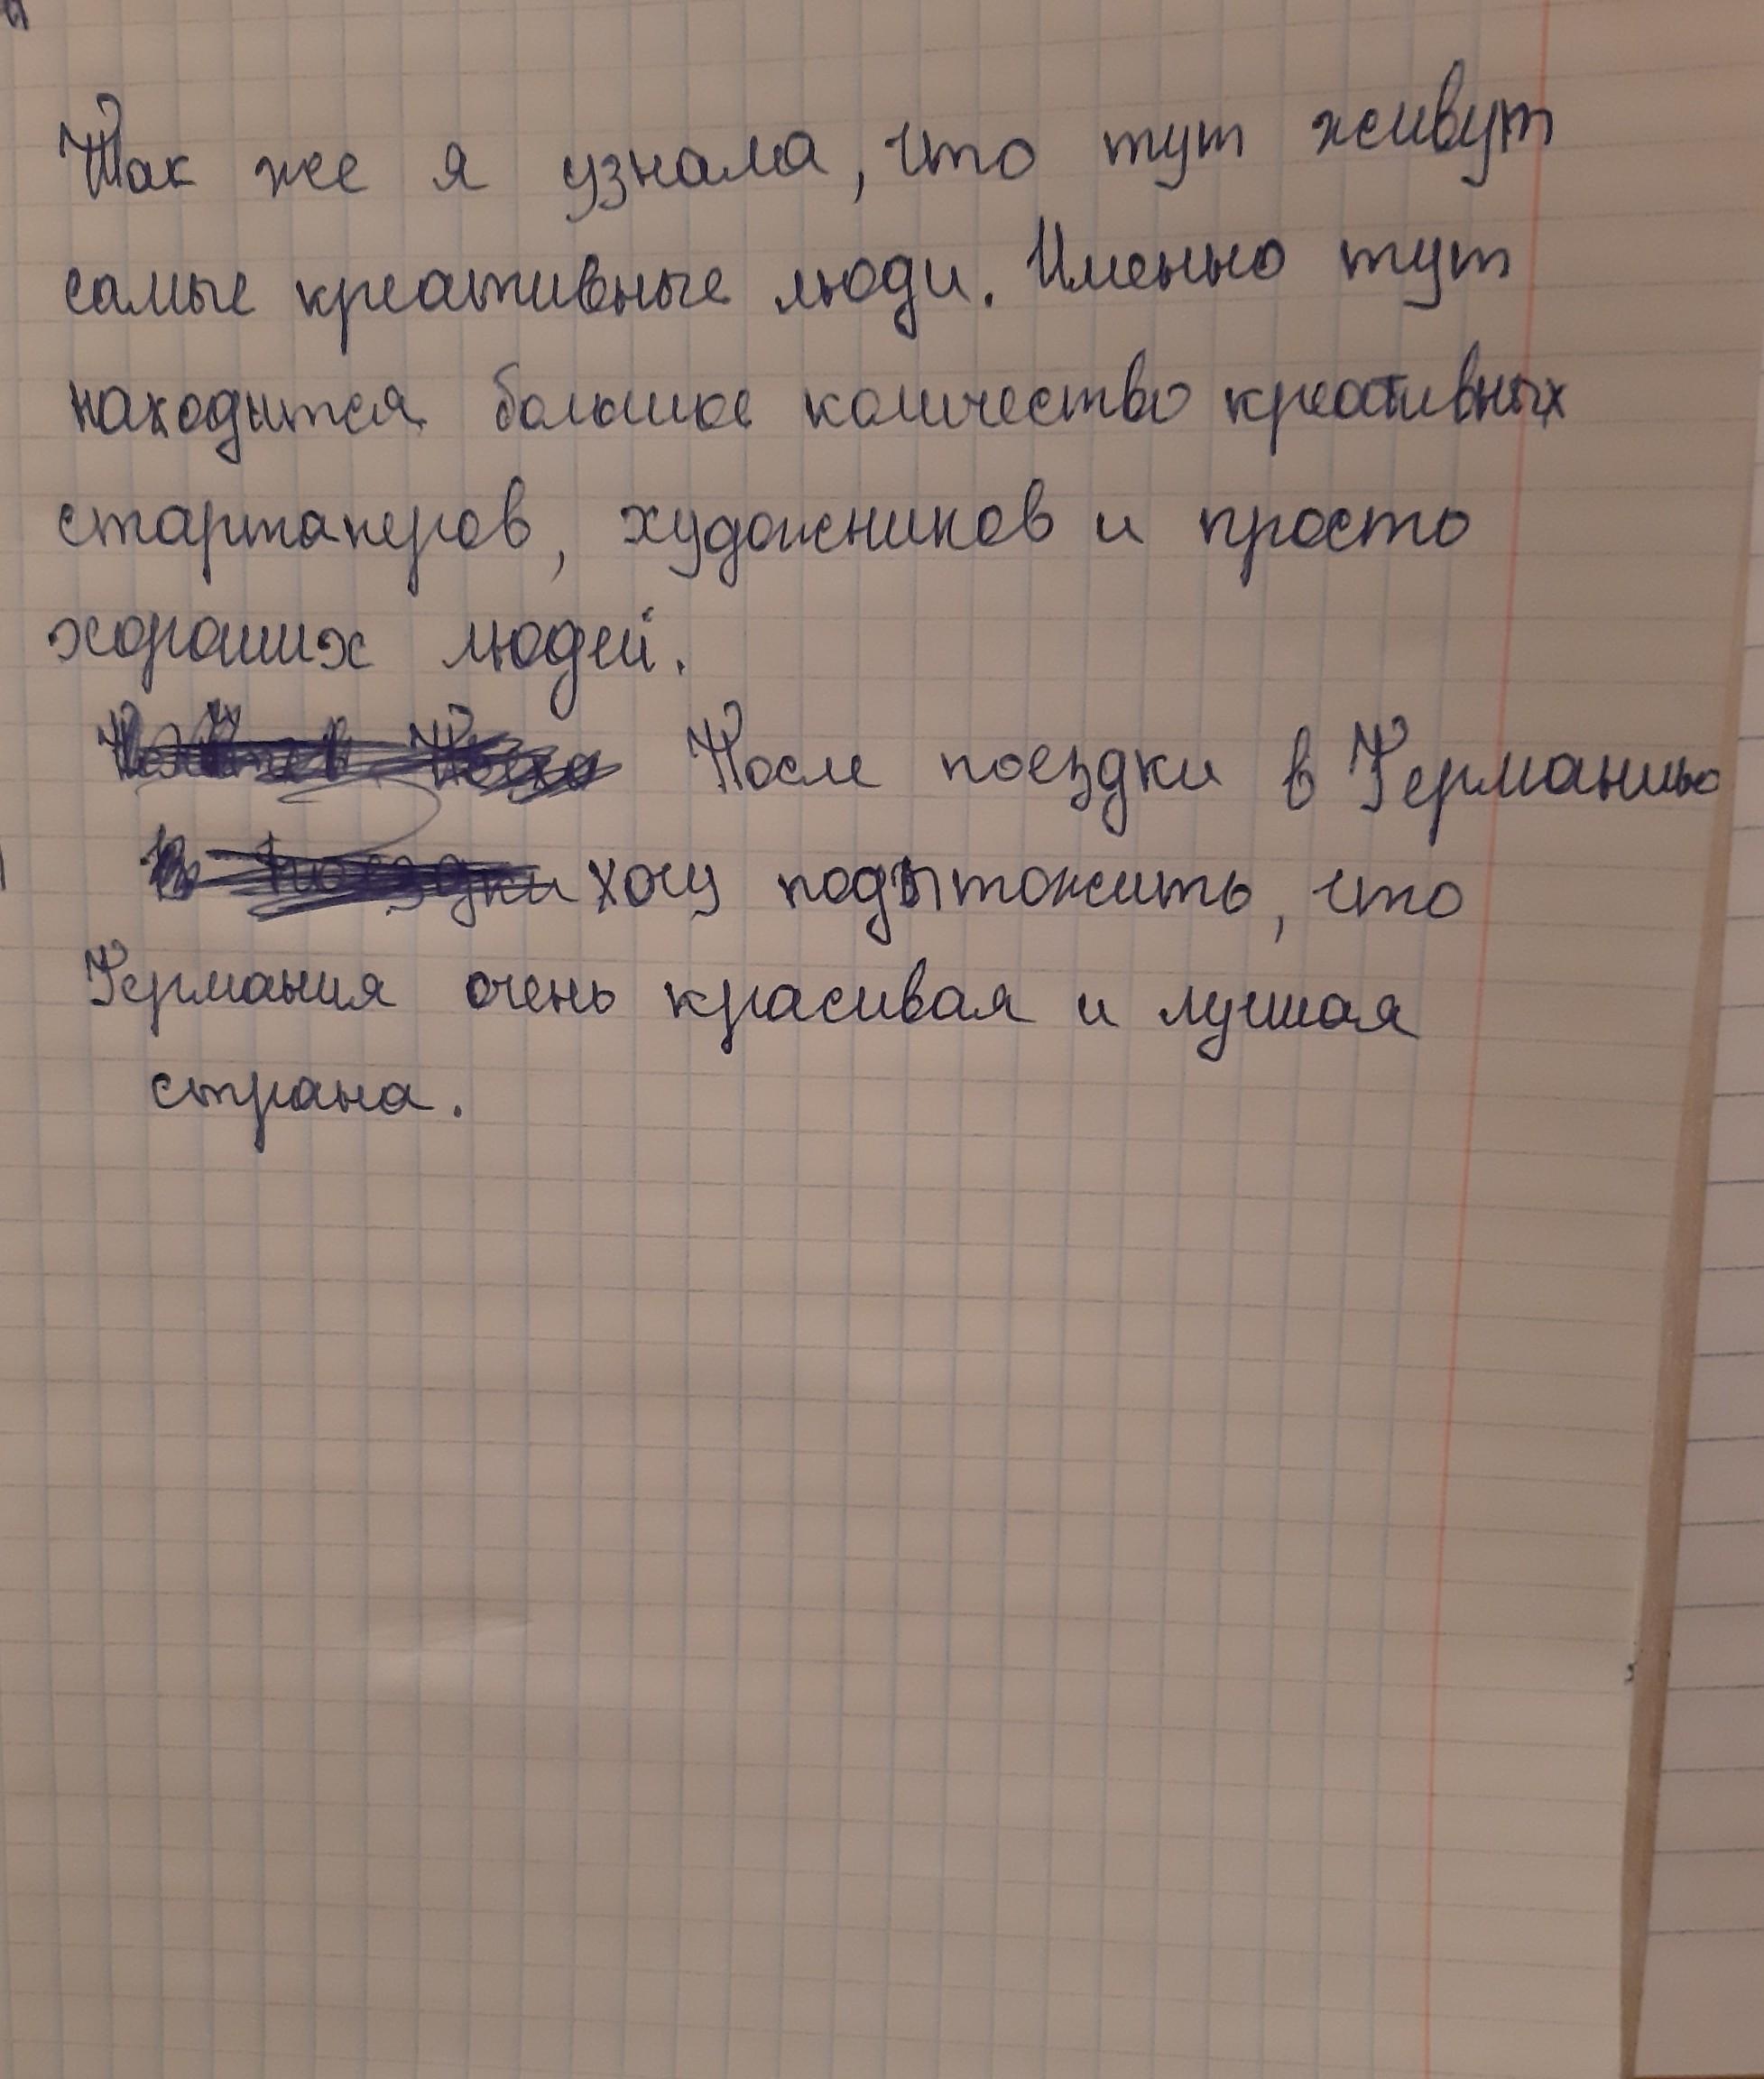 Так же я узнала, что тут живут
самые креативные люди. Именно тут
находится большое количество креативных
стартаперов, художников и просто
хороших людей.
После поездки в Германию
хочу подытожить, что
Германия очень красивая и лучшая
страна.